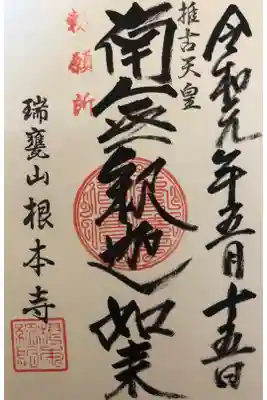 令和元年五月十五日
推古天皇
勅願所
南無釈迦如来
瑞甕山根本寺